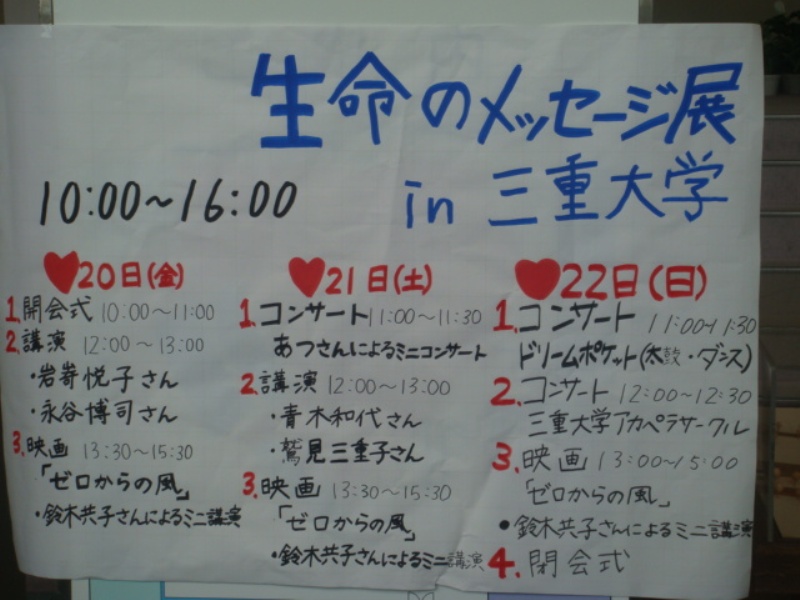 生命のメッセージ展
10:00〜16:00
in 三重大学
20日(金)
1.開会式 10:00〜11:00
2.講演 12:00〜13:00
・岩嵜悦子さん
・永谷博司さん
3.映画 13:30〜15:30
「ゼロからの風」
・鈴木共子さんによるミニ講演
21日(土)
1.コンサート 11:00〜11:30
あつさんによるミニコンサート
2.講演 12:00〜13:00
・青木和代さん
・鷲見三重子さん
3.映画 13:30〜15:30
「ゼロからの風」
・鈴木共子さんによるミニ講演
22日(日)
1.コンサート 11:00〜11:30
ドリームポケット(太鼓・ダンス)
2.コンサート 12:00〜12:30
三重大学アカペラサークル
3.映画 13:00〜15:00
「ゼロからの風」
●鈴木共子さんによるミニ講演
4.閉会式